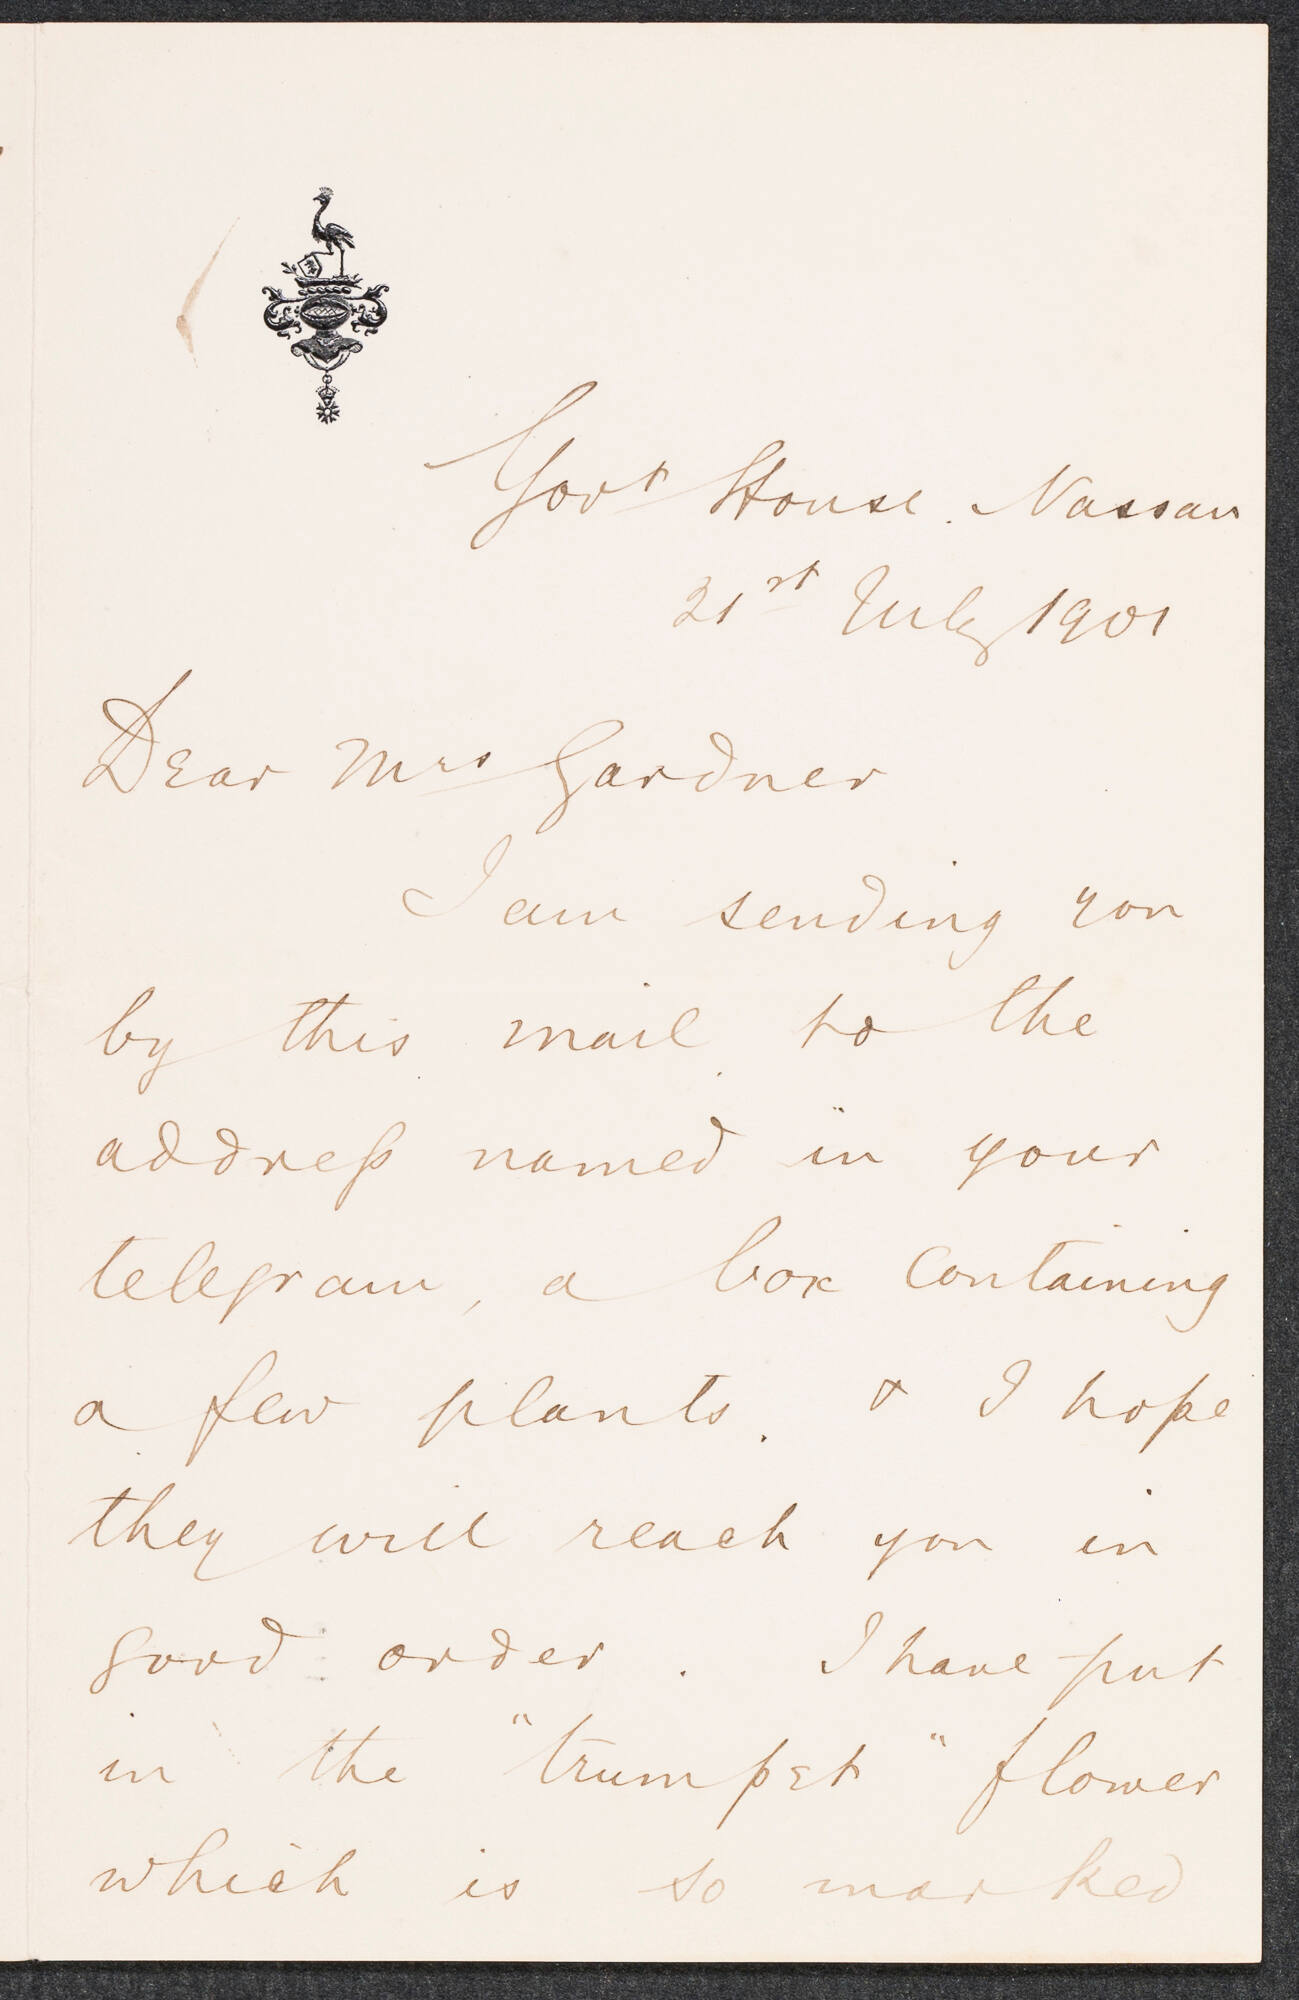 Govt House. Nassau
21st July 1901
Dear Mrs Gardner
I am sending you
by this mail to the
address named in your
telegram, a box containing
a few plants. & I hope
they will reach you in
good order. I have put
in the "trumpet" flower
which is so marked